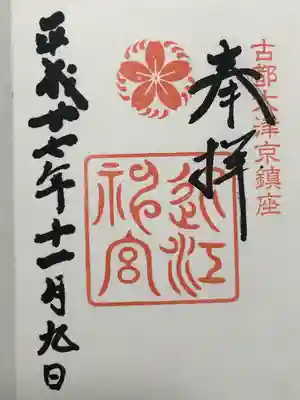 古都大津京鎮座
奉拝
近江神宮
平成十七年十一月九日